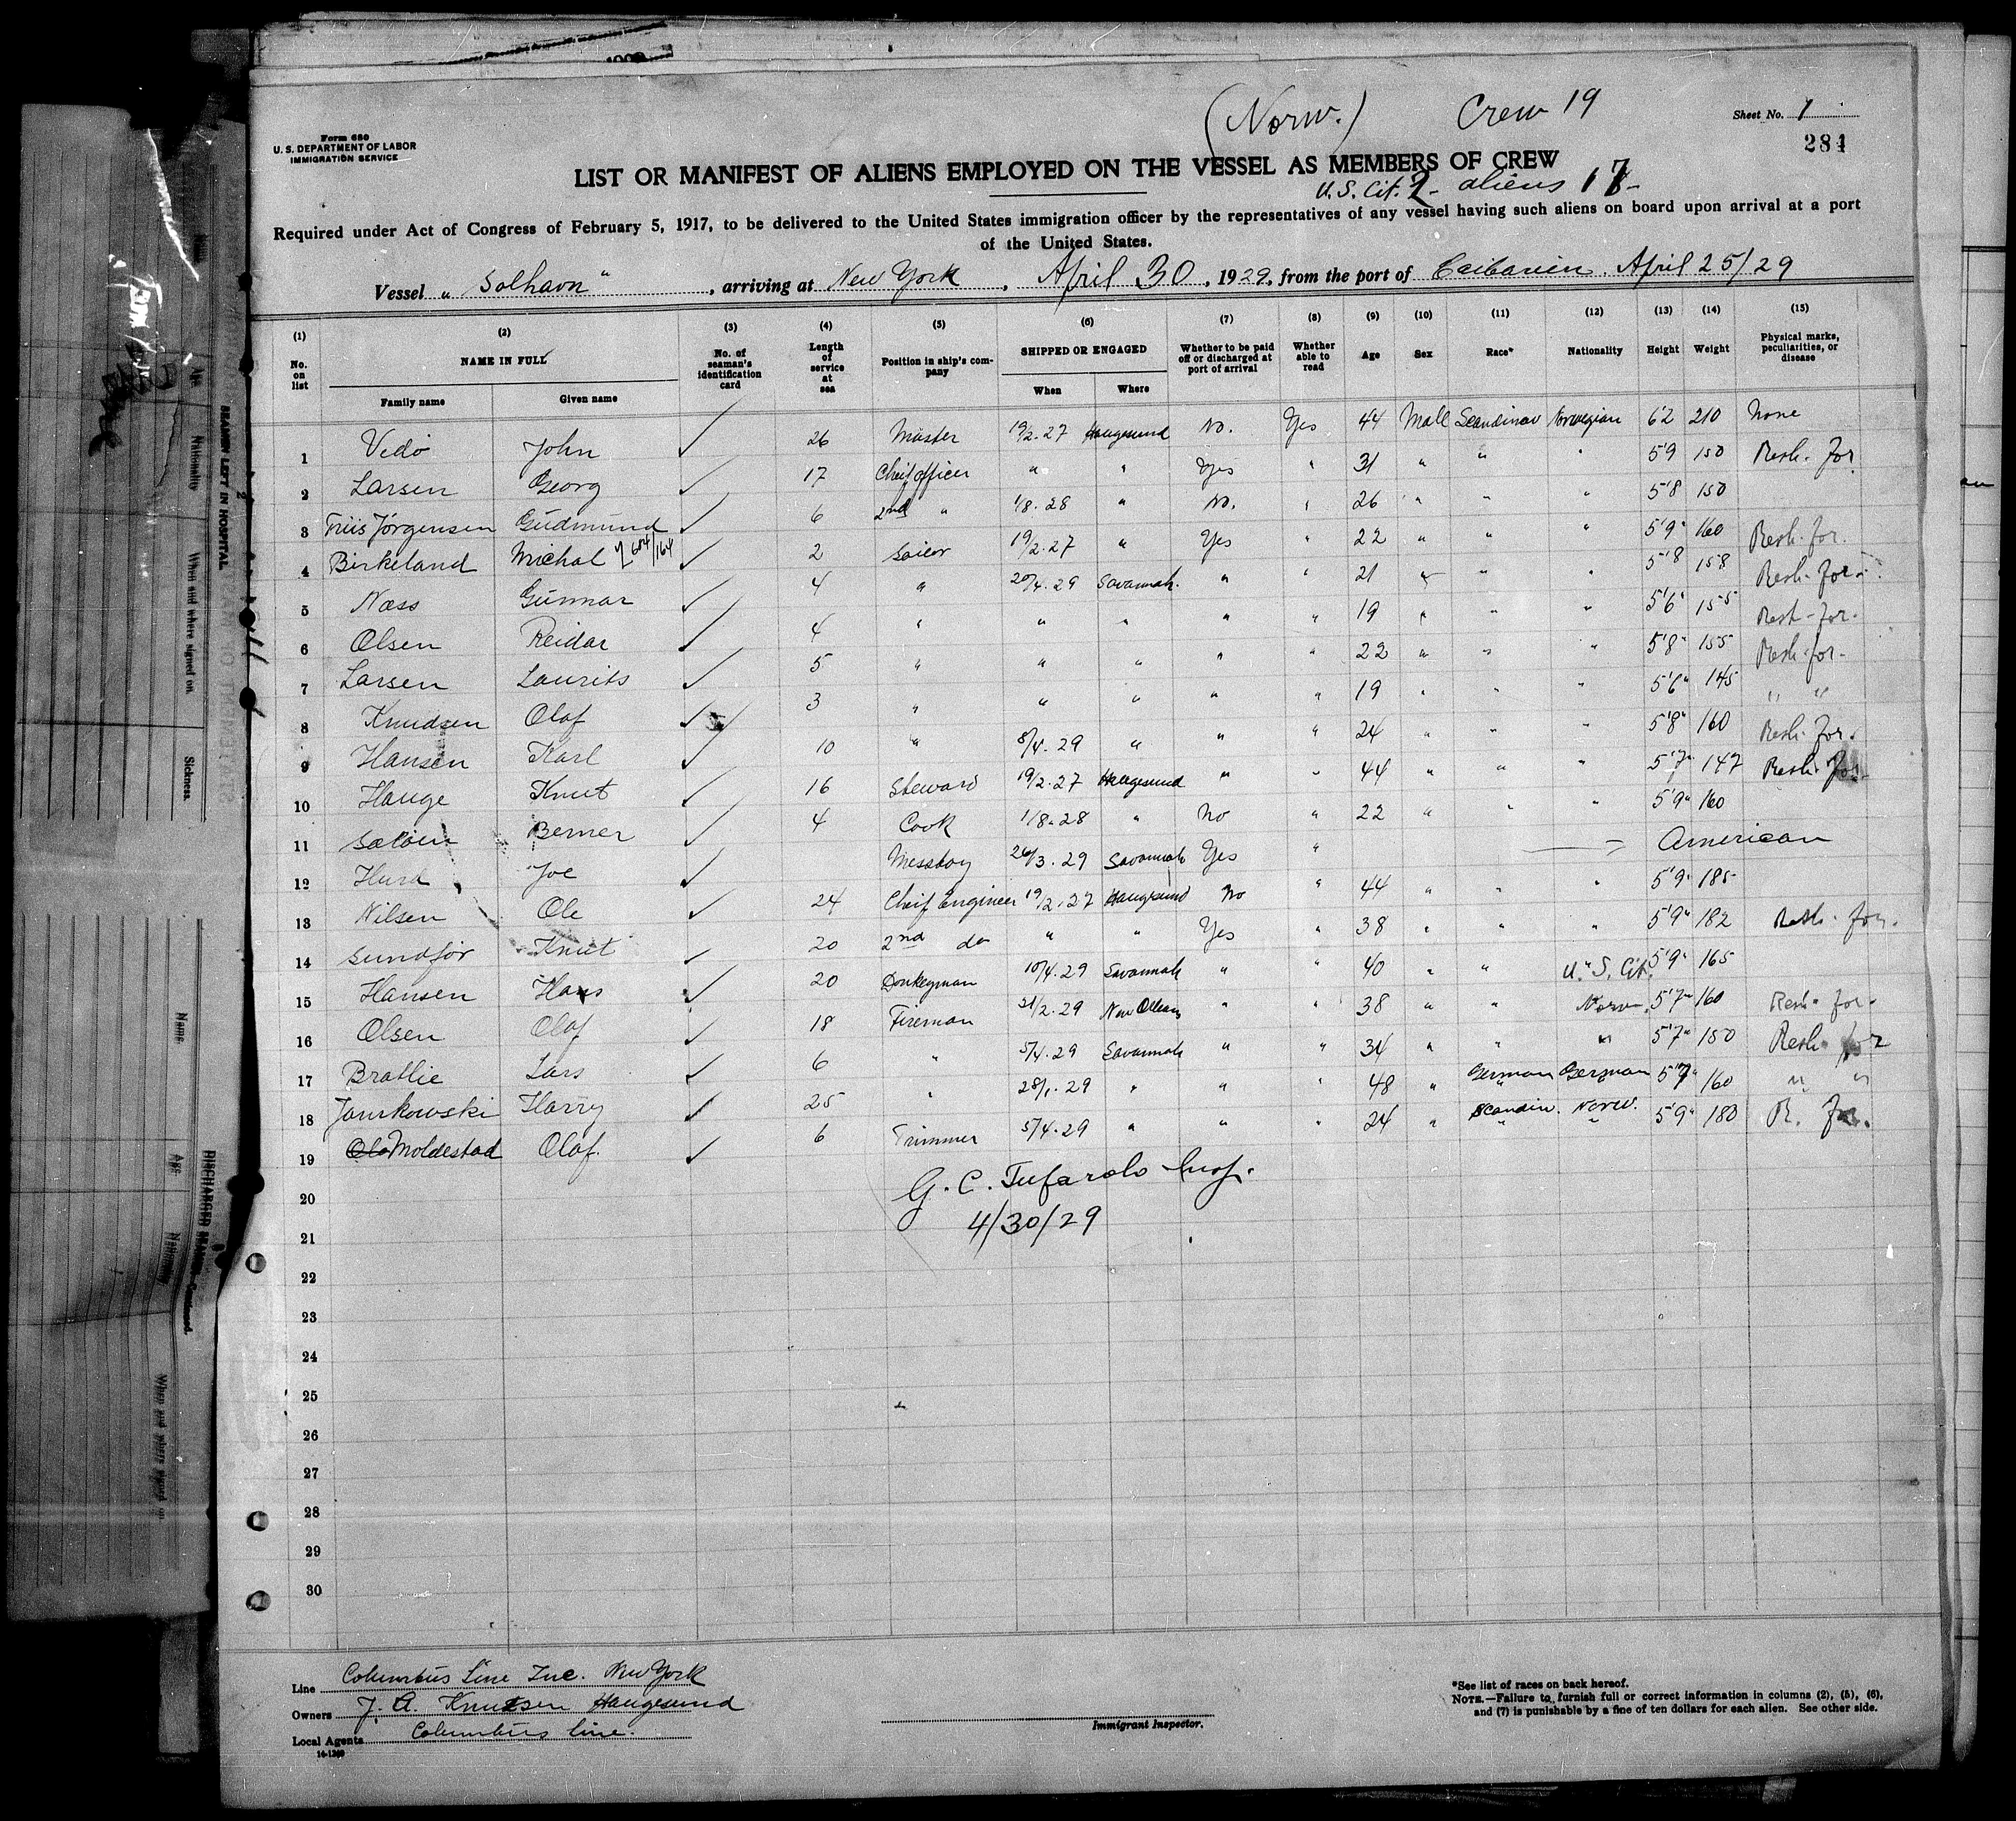 (Norw.) Crew 19
Sheet No. 1
284
Form 680
U. S. DEPARTMENT OF LABOR
IMMIGRATION SERVICE
LIST OR MANIFEST OF ALIENS EMPLOYED ON THE VESSEL AS MEMBERS OF CREW
U.S. Cit. 2 - aliens 17 -
Required under Act of Congress of February 5, 1917, to be delivered to the United States immigration officer by the representatives of any vessel having such aliens on board upon arrival at a port
of the United States.
Vessel "Solhavn", arriving at New York, April 30, 1929, from the port of Caibarien. April 25/29
(1) (2) (3) (4) (5) (6) (7) (8) (9) (10) (11) (12) (13) (14) (15)
No. on list NAME IN FULL No. of seaman's identification card Length of service at sea Position in ship's company SHIPPED OR ENGAGED Whether to be paid off or discharged at port of arrival Whether able to read Age Sex Race* Nationality Height Weight Physical marks, peculiarities, or disease
Family name Given name When Where
1 Vedö John 26 Master 19/2.27 Haugesund No. Yes 44 Mall Scandinav Norwegian 62 210 None
2 Larsen Georg 17 Cheif officer " " Yes " 31 " " " 59 150 Resh. for
3 Friis Jörgensen Gudmund 6 2nd " 1/8.28 " No. " 26 " " " 5'8 150
4 Birkeland Michal 2 Sailor 19/2.27 " Yes " 22 " " " 5'9" 160 Resh. for.
5 Næss Gunnar 4 " 20/4.29 Savannah. " " 21 " " " 5'8 158 Resh. for.
6 Olsen Reidar 4 " " " " " 19 " " " 5'6" 155 Resh. for.
7 Larsen Laurits 5 " " " " " 22 " " " 5'8" 155 Resh. for.
8 Knudsen Olaf 3 " " " " " 19 " " " 5'6" 145 " "
9 Hansen Karl 10 " 8/4.29 " " " 24 " " " 5'8" 160 Resh. for.
10 Hauge Knut 16 Steward 19/2.27 Haugesund " " 44 " " " 5'7" 147 Resh. for.
11 Berner 4 Cook 1/8.28 " No " 22 " " " 5'9" 160
12 Hurd Joe Messboy 26/3.29 Savannah Yes " American
13 Nilsen Ole 24 Cheif Engineer 19/2.27 Haugesund No " 44 " " " 5'9" 185
14 Sundför Knut 20 2nd do " " Yes " 38 " " " 5'9" 182 Resh. for.
15 Hansen Hans 20 Donkeyman 10/4.29 Savannah " " 40 " " U.S. Cit. 5'9" 165
16 Olsen Olaf 18 Fireman 21/2.29 New Orleans " " 38 " " Norw. 5'7" 160 Resh. for.
17 Bratlie Lars 6 " 5/4.29 Savannah " " 34 " " " 5'7" 150 Resh. for
18 Jankowski Harry 25 " 28/1.29 " " " 48 " German German 5'7" 160 " "
19 Moldestad Olaf. 6 Trimmer 5/4.29 " " " 24 " Scandin. Norw. 5'9" 180 R. for.
20
G. C. Tufarolo Insp.
21
4/30/29
22
23
24
25
26
27
28
29
30
Line Columbus Line Inc. New York
Owners J. A. Knutsen Haugesund
Local Agents Columbus line.
14-1249
Immigrant Inspector.
*See list of races on back hereof.
NOTE.—Failure to furnish full or correct information in columns (2), (5), (6),
and (7) is punishable by a fine of ten dollars for each alien. See other side.
SEAMEN LEFT IN HOSPITAL
Age
Nationality
When and where signed on.
Sickness.
DISCHARGED SEAMEN—Continued.
Name.
Age.
Nationality.
When and where signed on.